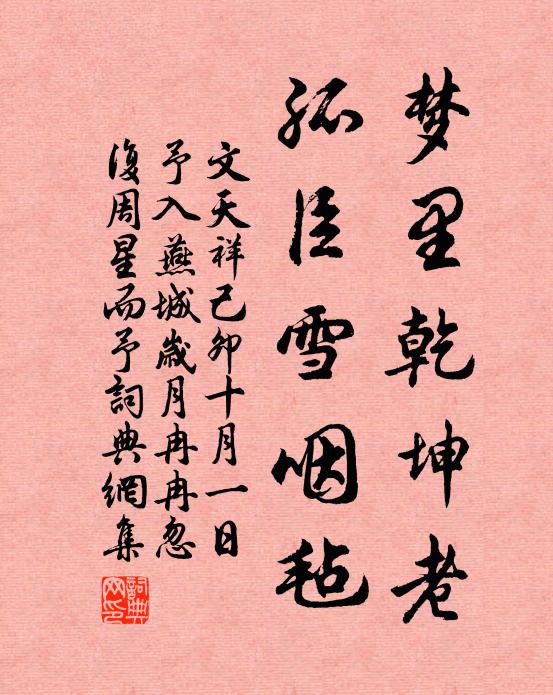 梦里乾坤老
孤臣雪咽毡
文天祥己卯十月一日
予入燕城岁月冉冉忽
復周星而予詞典網集
詞典網印